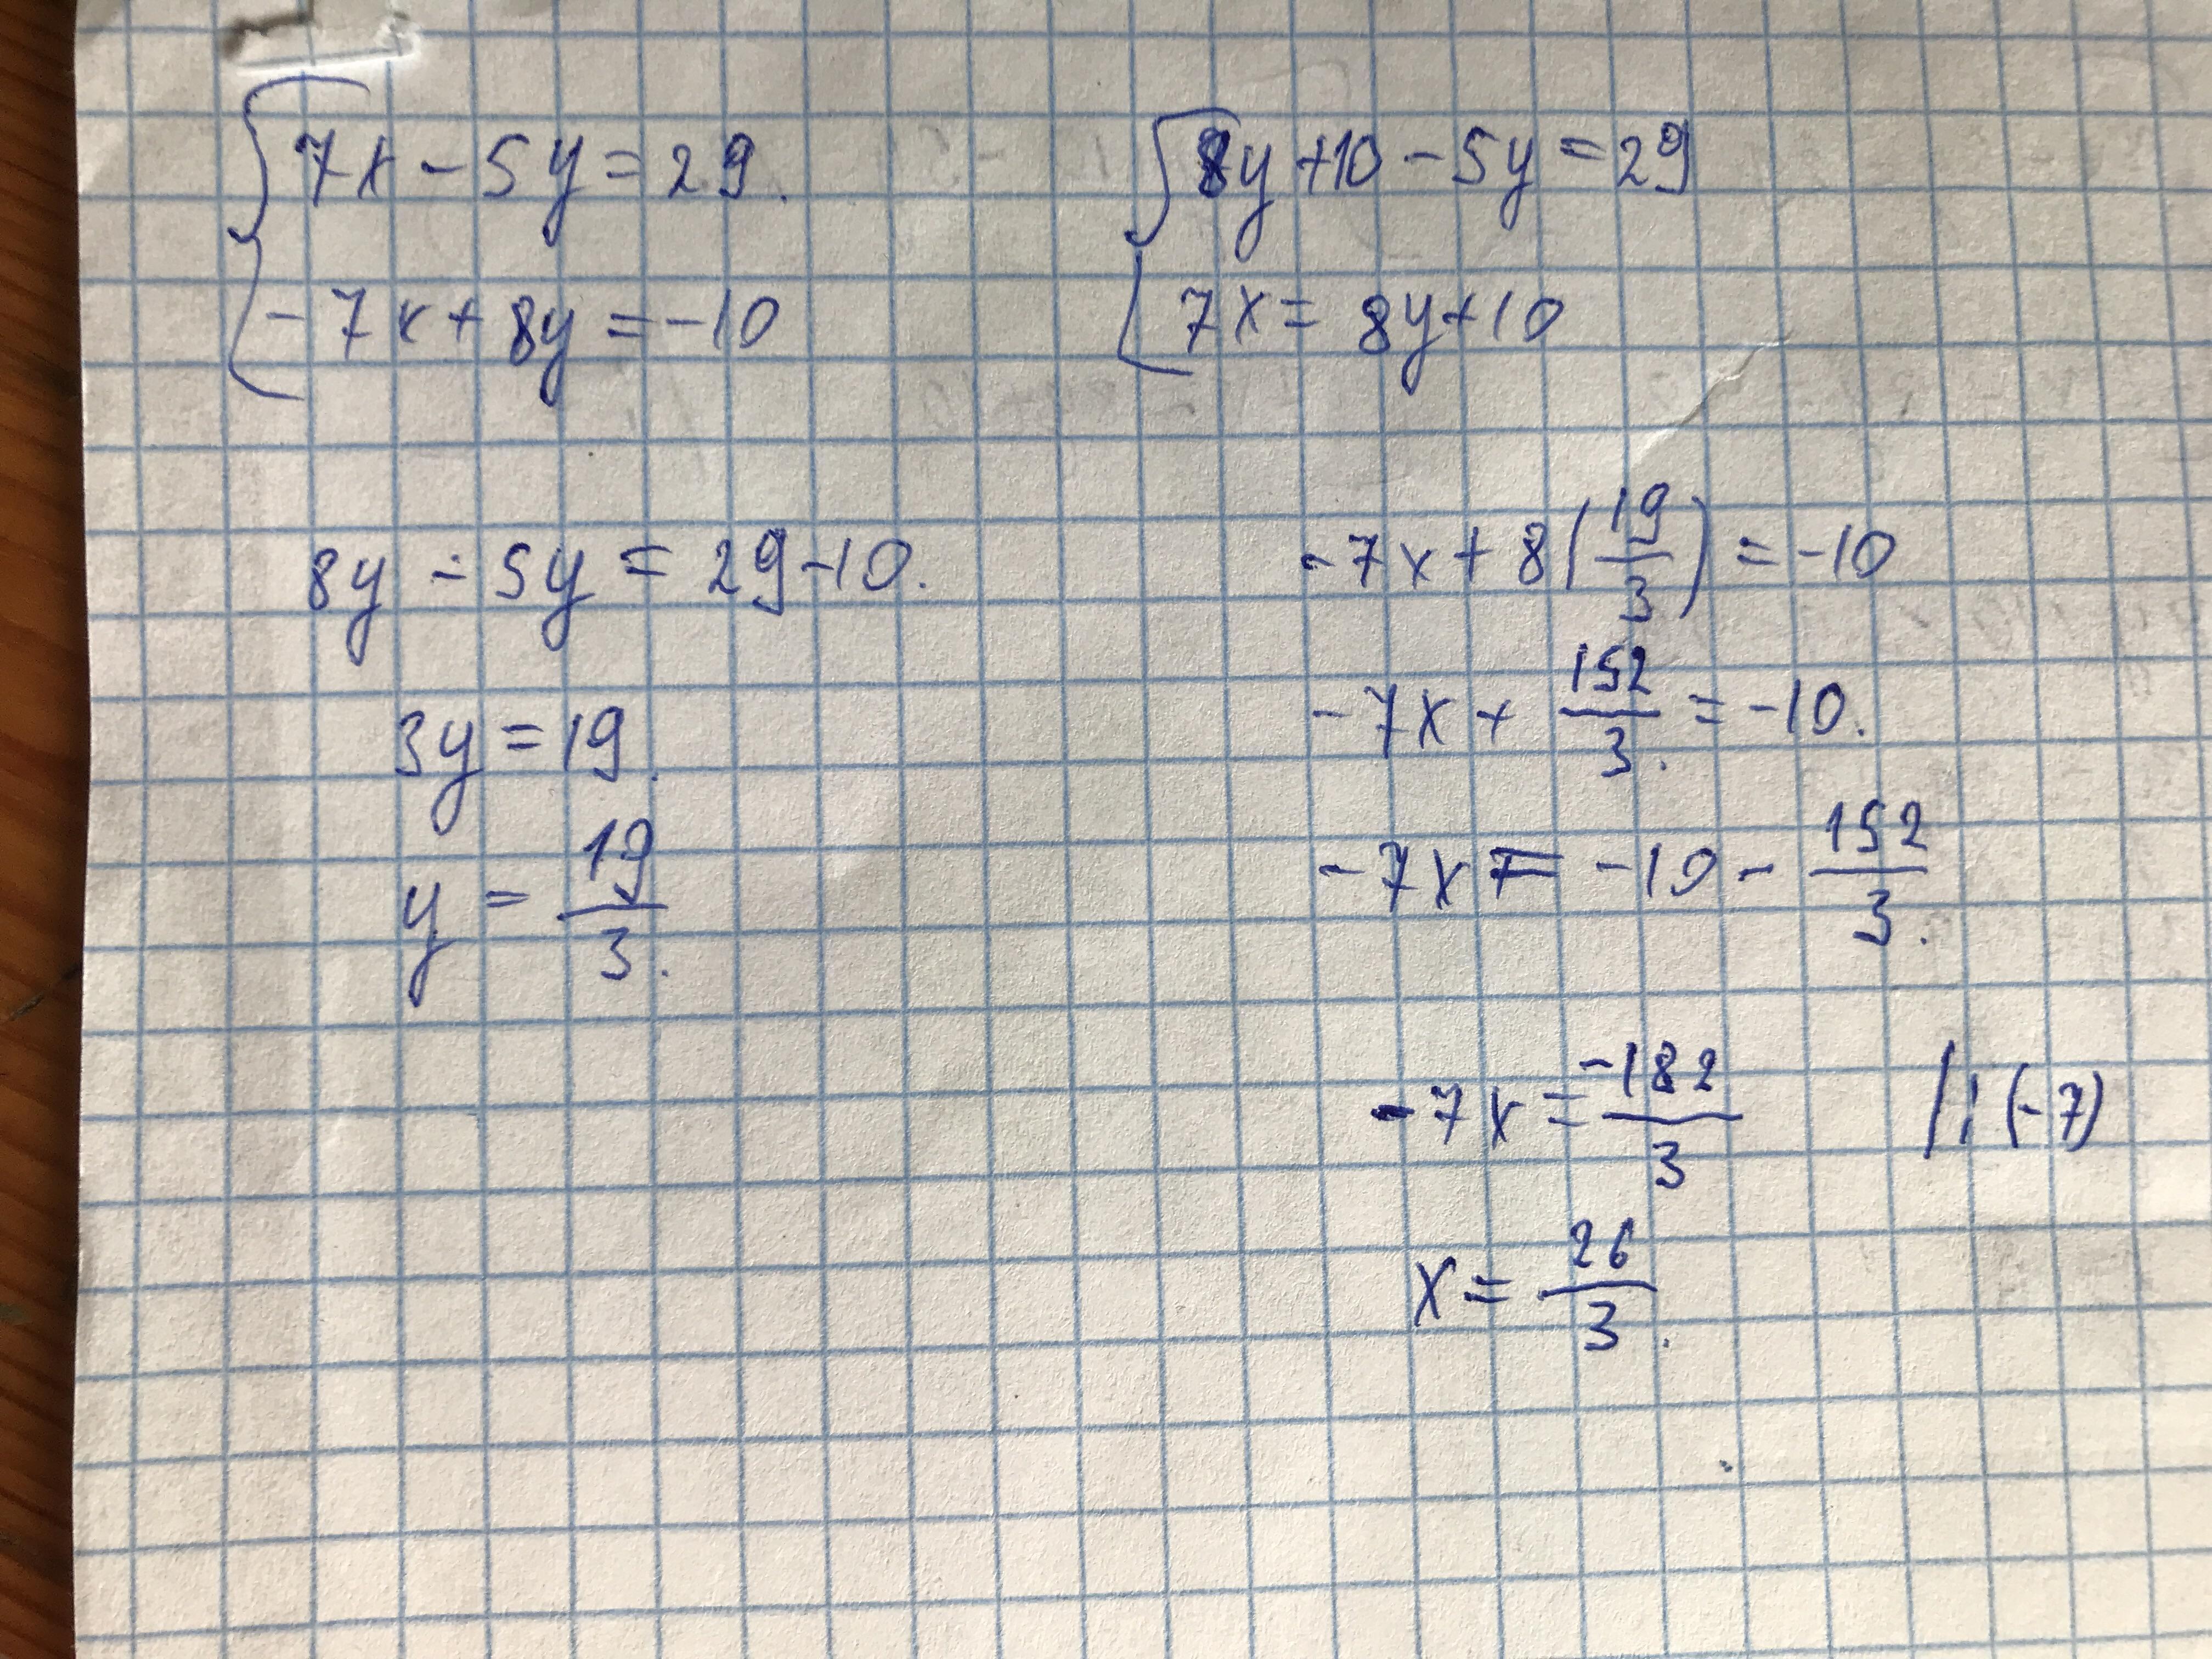 7x - 5y = 29.
-7x + 8y = -10
8y + 10 - 5y = 29
7x = 8y + 10
8y - 5y = 29 - 10.
3y = 19.
y = 19/3.
-7x + 8(19/3) = -10
-7x + 152/3. = -10.
-7x = -10 - 152/3.
-7x = -182/3 /: (-7)
x = 26/3.